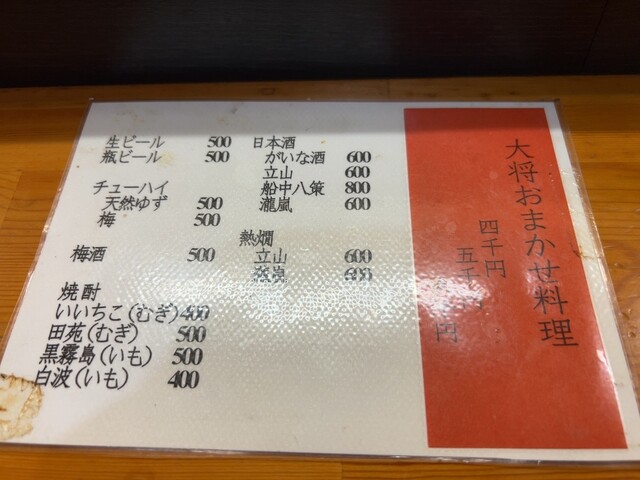 大将おまかせ料理
四千円
五千円
円
日本酒
がいな酒 600
立山 600
船中八策 800
瀧嵐 600
熱燗
立山 600
瀧嵐 600
生ビール 500
瓶ビール 500
チューハイ
天然ゆず 500
梅 500
梅酒 500
焼酎
いいちこ(むぎ)400
田苑(むぎ) 500
黒霧島(いも) 500
白波(いも) 400